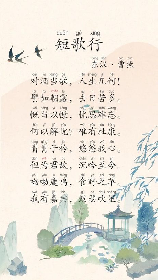 短歌行
东汉·曹操
对酒当歌，人生几何！
譬如朝露，去日苦多。
慨当以慷，忧思难忘。
何以解忧？唯有杜康。
青青子衿，悠悠我心。
但为君故，沉吟至今。
呦呦鹿鸣，食野之苹。
我有嘉宾，鼓瑟吹笙。